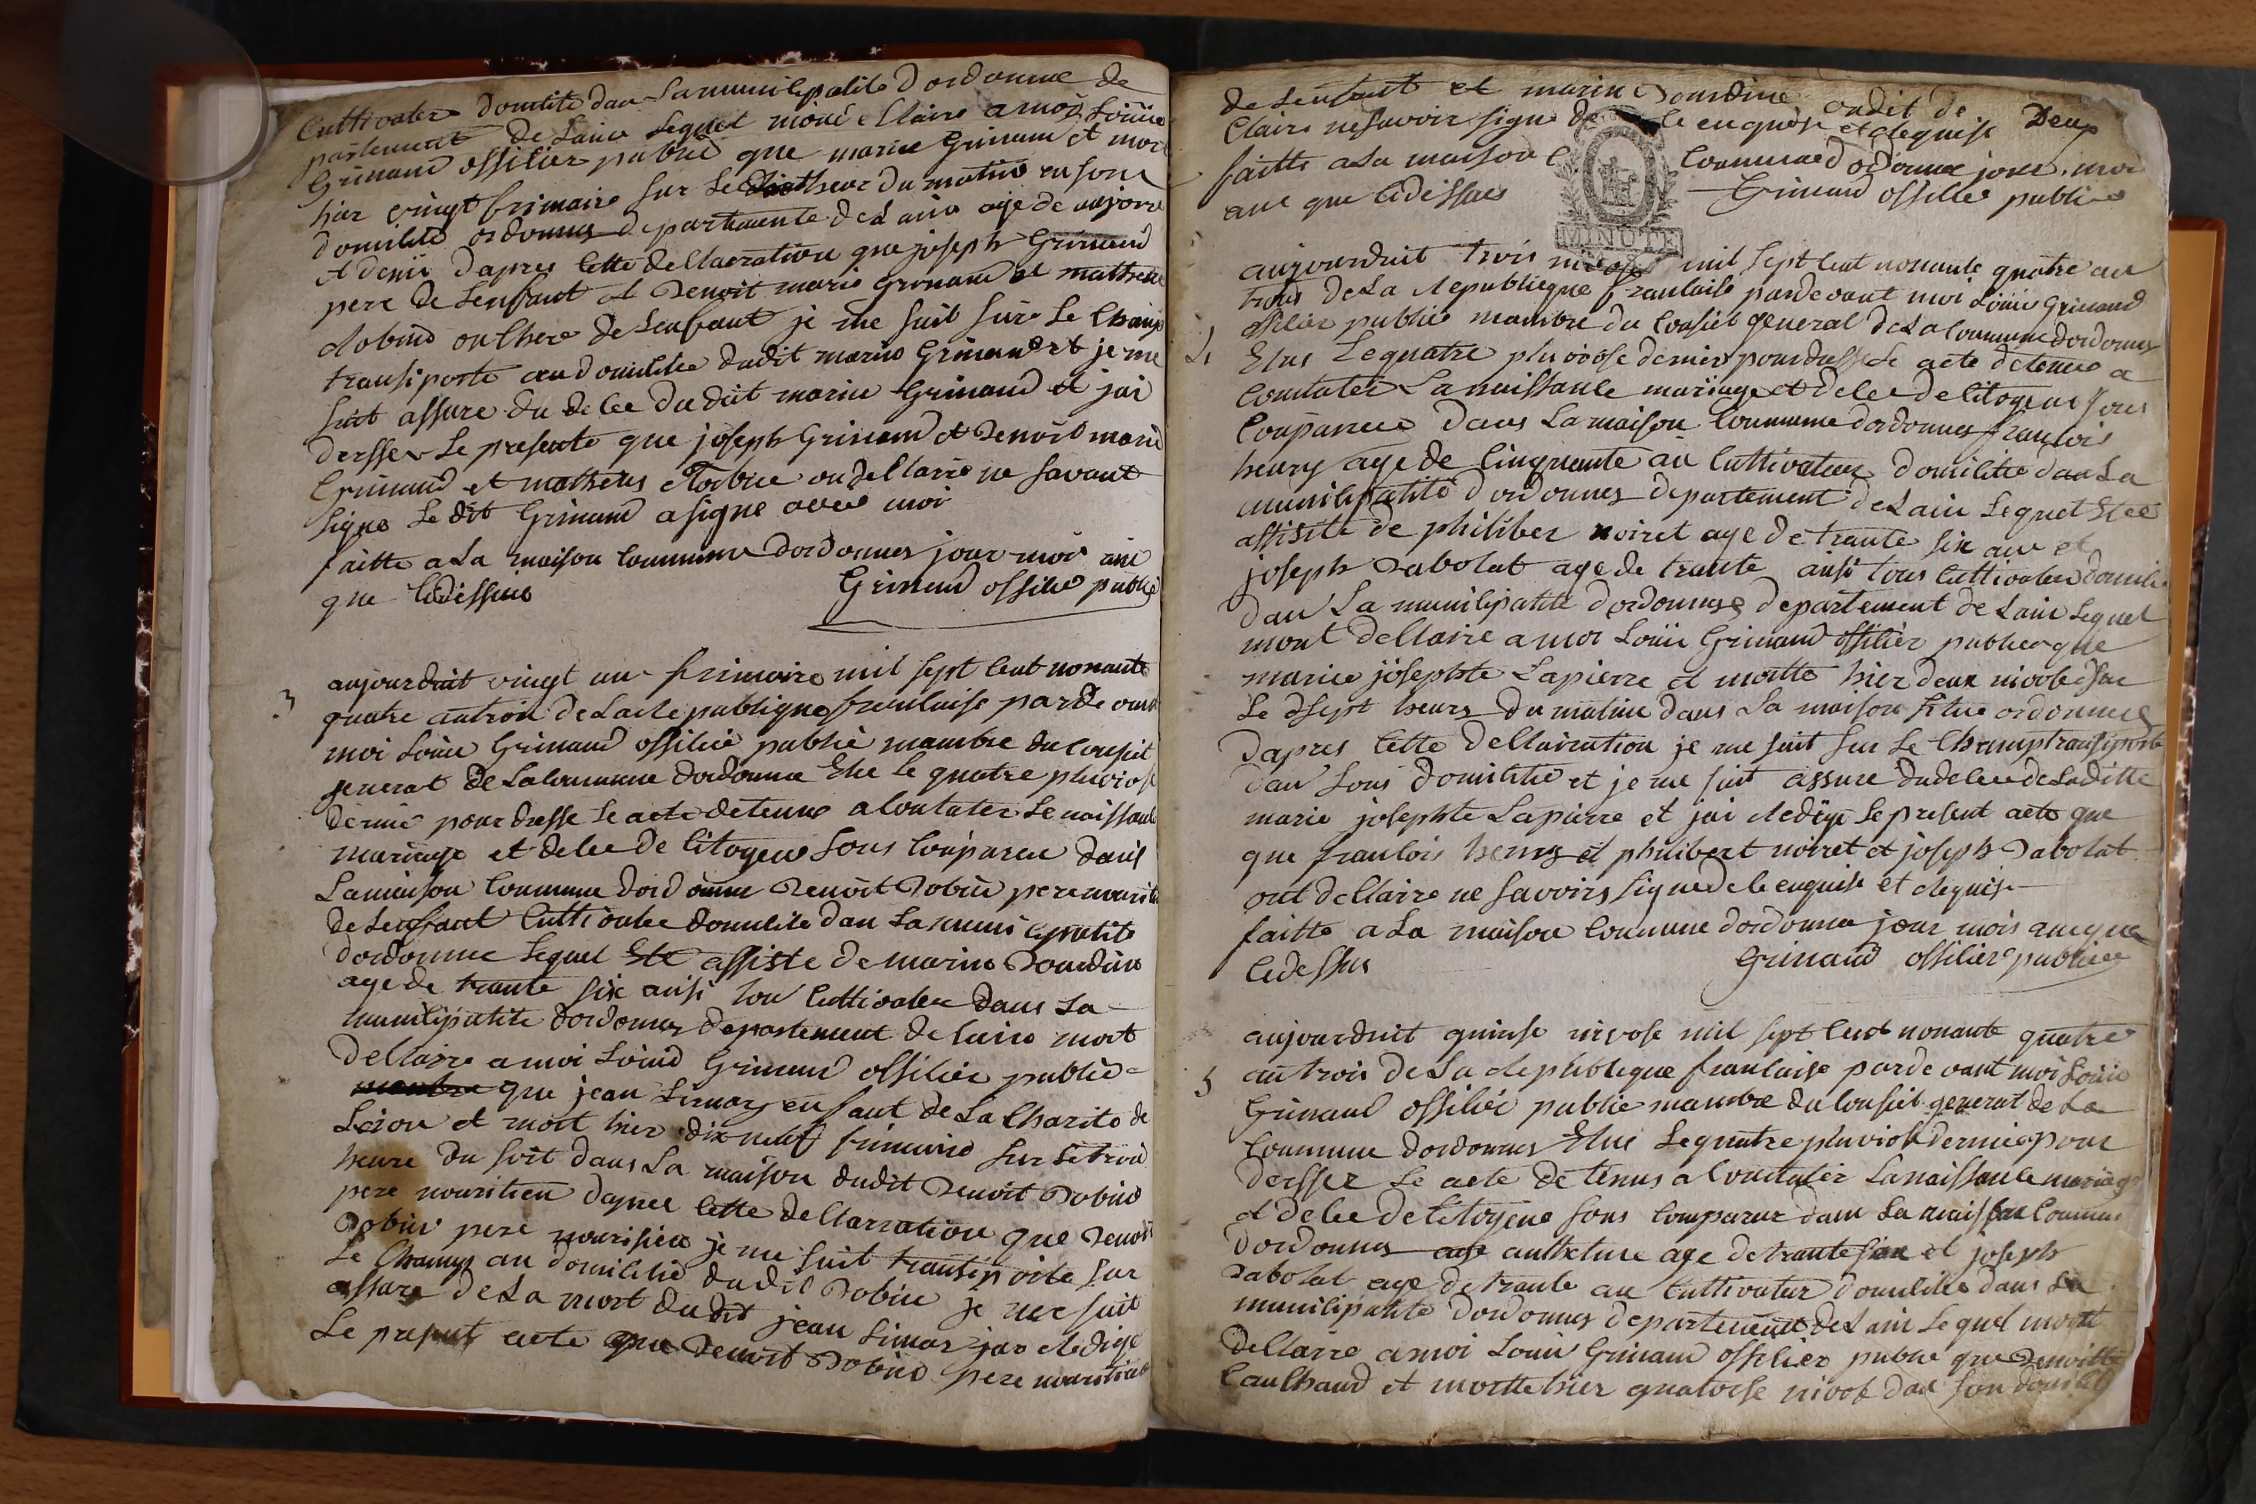 Cultivater domilite dan La municipalite dordonne de
partement de Lain Lequel mont dellaire a moi Loüie
Grinand offilier public que marie Grinand et mort
hier vingt frimaire sur Le heur du matin en son
domilite ordonnes departemente de Lain age de unjour
et demi dapres cette dellaration que joseph Grinand
pere de Lenfant et Benoit marie Grinand et mathieu
Robin de Lenfant je me suit sur Le Champ
transporte au domilile dudit marie Grinand et je me
suit assure du dece du dit marie Grinand et jai
dersser Le presente que joseph Grinand et Benoit marie
Grinand et mathieu Robin on dellaire ne savant
signe Le dit Grinand a signe avec moi
faitte a La maison Commune dordonnes jour mois ane
que Cidessus Grinand offilie public
3
aujourduit vingt un frimaire mil sept Cent nonante
quatre antrois de La republique franlaise pardevant
moi Loüie Grinand offilié publié mambre du Conseil
general de La Commune dordonne Elue Le quatre pluviose
dernié pour dresse Le acte detenue a Contater Le naissanle
mariage et delee de Litoyens sons Comparue dans
La maison Commune dordonne Benoit Robin pere nouriti
de Lenffant Cultivatee domilile dan La municipalite
dordonne Lequel Ete assiste de marin Bourdin
age de trante six ansi tou Cultivatee dans La
munilipalite dordonnes departement de Lain mort
dellaire a moi Loüie Grinand offilier public
que jean Limas enfant de La Charite de
Leion et mort hier dix neuf frimaire sur Le trois
heure du soit dans La maison dudit Benoit Robin
pere nouritien dapres Cette dellarration que Benoit
Robin pere nourisien je me suit transporte sur
Le Champ au domililie dudit Robin je me suit
assure de La mort dudit jean Limas jai redige
Le present acte que Benoit Robin pere nouritien
de Lenfant et marin Bourdin ondit de
Deup
Claire ne savoir signe de Le enquise et requise
faitte a La maison Commune dordonne jour moi
ane que Cidessus Grinand offilie public
MINUTE
4
aujourduit trois nivose mil sept Cent nonante quatre an
trois de La republieque franlaise pardevant moi Loüie Grinand
offilier public mambre du Conseil general de La Commune dordonnes
Elue Le quatre pluviose dernier pourdresse Le acte detenue a
Contater La naissanle mariage et delee de Litoyens sons
Comparue dans La maison Commune dordonnes franlois
henry age de Cinquante an Cultivateur domilitie dan La
munilipalité dordonnes departement de Lain Lequel Etee
assiste de philiber noiret age de trante six an et
joseph Rabolat age de trante ansi tous Cultivateu domilie
dan La munilipalite dordonnes departement de Lain Lequel
mont dellaire a moi Loüie Grinand offilier public que
marie josephte Lapierre et mortte hier deux nivose sur
Le dsept heurs du matin dans La maison situe ordonnes
dapres Cette dellairation je me suit sur Le Champ transporte
dan Sons domilitie et je me suit assure dudelee de Laditte
marie josephte Lapierre et jai redige Le present acte que
que franlois henry et philibert noiret et joseph Rabolat
ont dellaire ne savoirs signe de le enquise et requise
faitte a La maison Commune dordonne jour mois anque
Cidessus Grinand offilier public
5
aujourduit quinse nivose mil sept Cent nonante quatre
an trois de La republieque franlaise pardevant moi Loüie
Grinaud offilié public mambre du Conseil general de La
Commune dordonnes Elue Le quatre pluviose dernier pour
dersser Le acte de tenus a Contater La naissanle mariage
et delee de Litoyens sons Comparue dans La maison Commune
dordonnes age de trante six et joseph
Rabolat age de trante an Cultivateur domililie dans La
munilipalite dordonnes departement de Lain Lequel mont
dellaire a moi Loüie Grinand offilier public que Benoitte
Caulhaud et mortte hier quatorse nivose dan son domilile